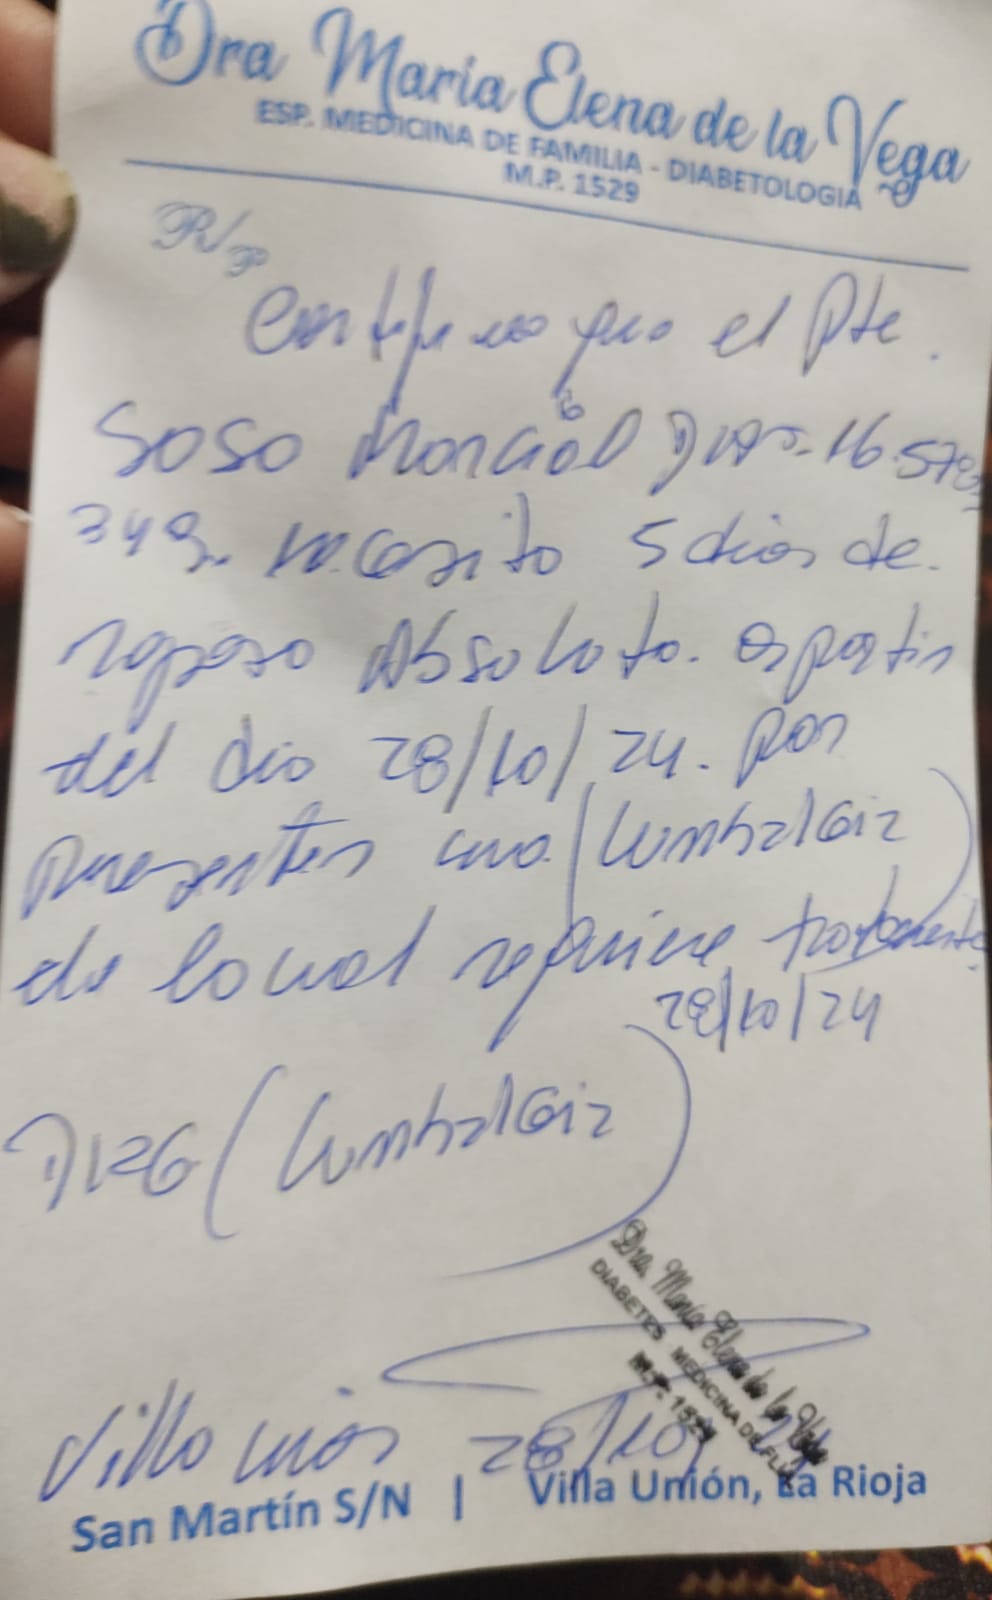 Dra María Elena de la Vega
ESP. MEDICINA DE FAMILIA - DIABETOLOGIA
M.P. 1529
R/P
Certifico que el Pte.
Soso Marcial DNI. 16.578.
349. necesita 5 dias de.
reposo Absoluto. a partir
del dia 28/10/24. por
presentar una (Lumbalgia)
de lo cual requiere tratamiento
28/10/24
(Lumbalgia)
Dra. María Elena de la Vega
DIABETES MEDICINA DE FLIA
M.P. 1529
Villa Unión 28/10/
San Martín S/N | Villa Unión, La Rioja